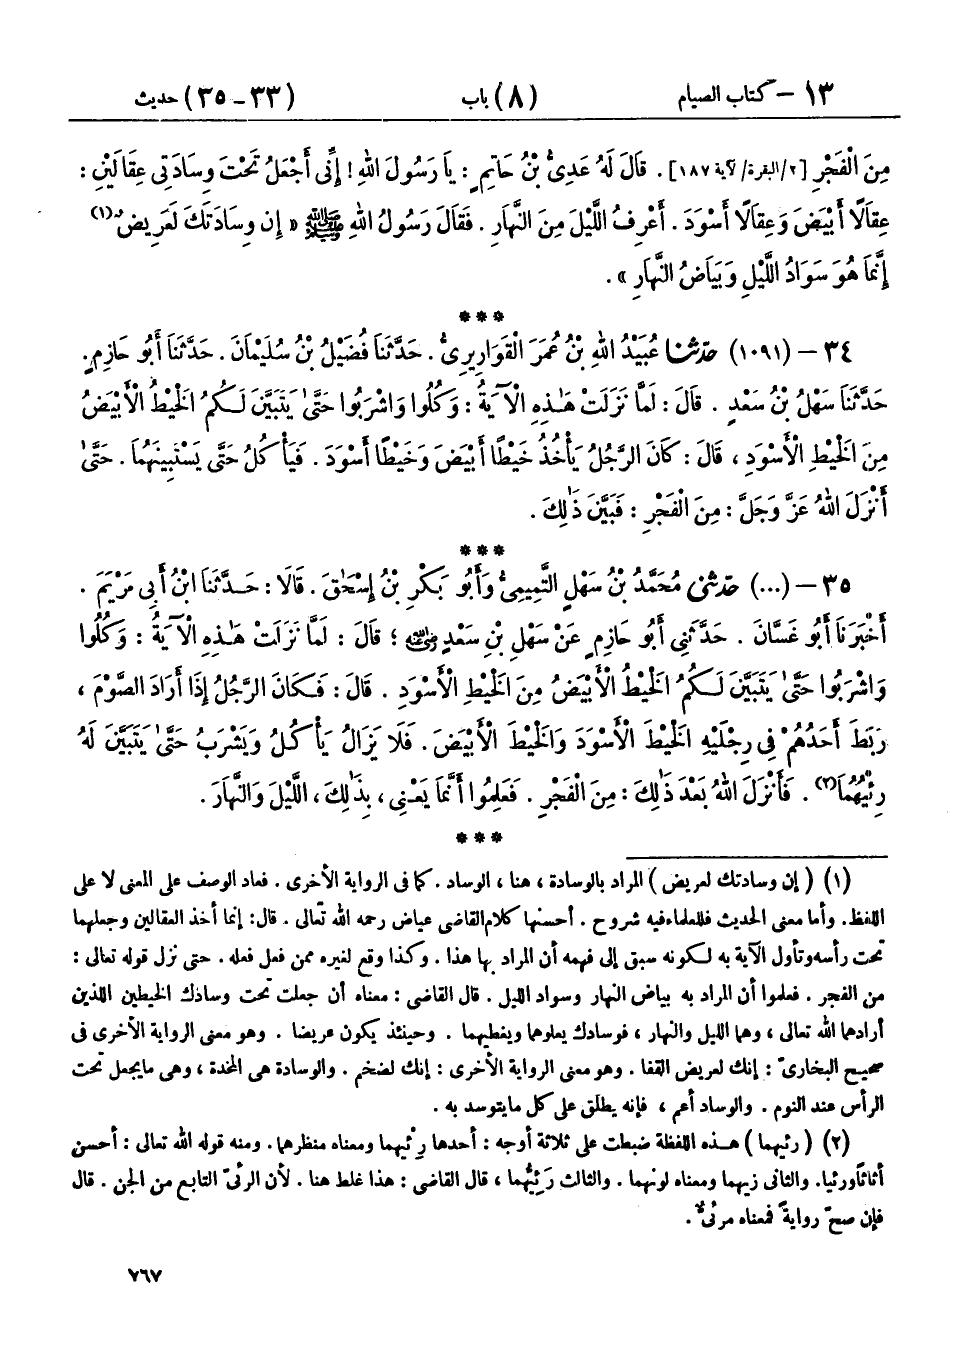 ١٣ – كتاب الصيام (٨) باب (٣٣ – ٣٥) حديث
مِنَ الْفَجْرِ [٢/البقرة/ لآية ١٨٧]. قَالَ لَهُ عَدِىُّ بْنُ حَاتِمٍ : يَا رَسُولَ اللهِ! إِنِّى أَجْعَلُ تَحْتَ وِسَادَتِى عِقَالَيْنِ :
عِقَالًا أَبْيَضَ وَعِقَالًا أَسْوَدَ . أَعْرِفُ اللَّيْلَ مِنَ النَّهَارِ . فَقَالَ رَسُولُ اللهِ ﷺ « إِن وِسَادَتَكَ لَعَرِيضٌ (١)
إِنَّمَا هُوَ سَوَادُ اللَّيْلِ وَبَيَاضُ النَّهَارِ » .
***
٣٤ – (١٠٩١) حدثنا عُبَيْدُ اللهِ بْنُ عُمَرَ الْقَوَارِيرِىُّ . حَدَّثَنَا فُضَيْلُ بْنُ سُلَيْمَانَ . حَدَّثَنَا أَبُو حَازِمٍ .
حَدَّثَنَا سَهْلُ بْنُ سَعْدٍ . قَالَ : لَمَّا نَزَلَتْ هَٰذِهِ الْآيَةُ : وَكُلُوا وَاشْرَبُوا حَتَّىٰ يَتَبَيَّنَ لَكُمُ الْخَيْطُ الْأَبْيَضُ
مِنَ الْخَيْطِ الْأَسْوَدِ ، قَالَ : كَانَ الرَّجُلُ يَأْخُذُ خَيْطًا أَبْيَضَ وَخَيْطًا أَسْوَدَ . فَيَأْكُلُ حَتَّى يَسْتَبِينَهُمَا . حَتَّىٰ
أَنْزَلَ اللهُ عَزَّ وَجَلَّ : مِنَ الْفَجْرِ : فَبَيَّنَ ذَٰلِكَ .
***
٣٥ – (...) حدثنى مُحَمَّدُ بْنُ سَهْلٍ التَّمِيمِىُّ وَأَبُو بَكْرِ بْنُ إِسْحَٰقَ . قَالَا : حَدَّثَنَا ابْنُ أَبِى مَرْيَمَ .
أَخْبَرَنَا أَبُو غَسَّانَ . حَدَّثَنِى أَبُو حَازِمٍ عَنْ سَهْلِ بْنِ سَعْدٍ رضي الله عنه ؛ قَالَ : لَمَّا نَزَلَتْ هَٰذِهِ الْآيَةُ : وَكُلُوا
وَاشْرَبُوا حَتَّىٰ يَتَبَيَّنَ لَكُمُ الْخَيْطُ الْأَبْيَضُ مِنَ الْخَيْطِ الْأَسْوَدِ . قَالَ : فَكَانَ الرَّجُلُ إِذَا أَرَادَ الصَّوْمَ ،
رَبَطَ أَحَدُهُمْ فِى رِجْلَيْهِ الْخَيْطَ الْأَسْوَدَ وَالْخَيْطَ الْأَبْيَضَ . فَلَا يَزَالُ يَأْكُلُ وَيَشْرَبُ حَتَّىٰ يَتَبَيَّنَ لَهُ
رِئْيُهُمَا (٢) . فَأَنْزَلَ اللهُ بَعْدَ ذَٰلِكَ : مِنَ الْفَجْرِ . فَعَلِمُوا أَنَّمَا يَعْنِى ، بِذَٰلِكَ ، اللَّيْلَ وَالنَّهَارَ .
***
(١) ( إن وسادتك لعريض ) المراد بالوسادة ، هنا ، الوساد . كما فى الرواية الأخرى . فعاد الوصف على المعنى لا على
اللفظ. وأما معنى الحديث فللعلماء فيه شروح . أحسنها كلام القاضى عياض رحمه الله تعالى . قال: إنما أخذ العقالين وجعلهما
تحت رأسه وتأول الآية به لكونه سبق إلى فهمه أن المراد بها هذا . وكذا وقع لغيره ممن فعل فعله . حتى نزل قوله تعالى :
من الفجر . فعلموا أن المراد به بياض النهار وسواد الليل . قال القاضى : معناه أن جعلت تحت وسادك الخيطين اللذين
أرادهما الله تعالى ، وهما الليل والنهار ، فوسادك يعلوهما ويغطيهما . وحينئذ يكون عريضا . وهو معنى الرواية الأخرى فى
صحيح البخارىّ : إنك لعريض القفا . وهو معنى الرواية الأخرى : إنك لضخم . والوسادة هى المخدة ، وهى مايجعل تحت
الرأس عند النوم . والوساد أعم ، فإنه يطلق على كل مايتوسد به .
(٢) ( رئيهما ) هذه اللفظة ضبطت على ثلاثة أوجه : أحدها رِئْيهما ومعناه منظرهما . ومنه قوله الله تعالى : أحسن
أثاثاً ورئيا. والثانى زيهما ومعناه لونهما . والثالث رَئِيُّهما ، قال القاضى : هذا غلط هنا . لأن الرئىّ التابع من الجن . قال
فإن صحّ روايةً فمعناه مرئىّ .
٧٦٧